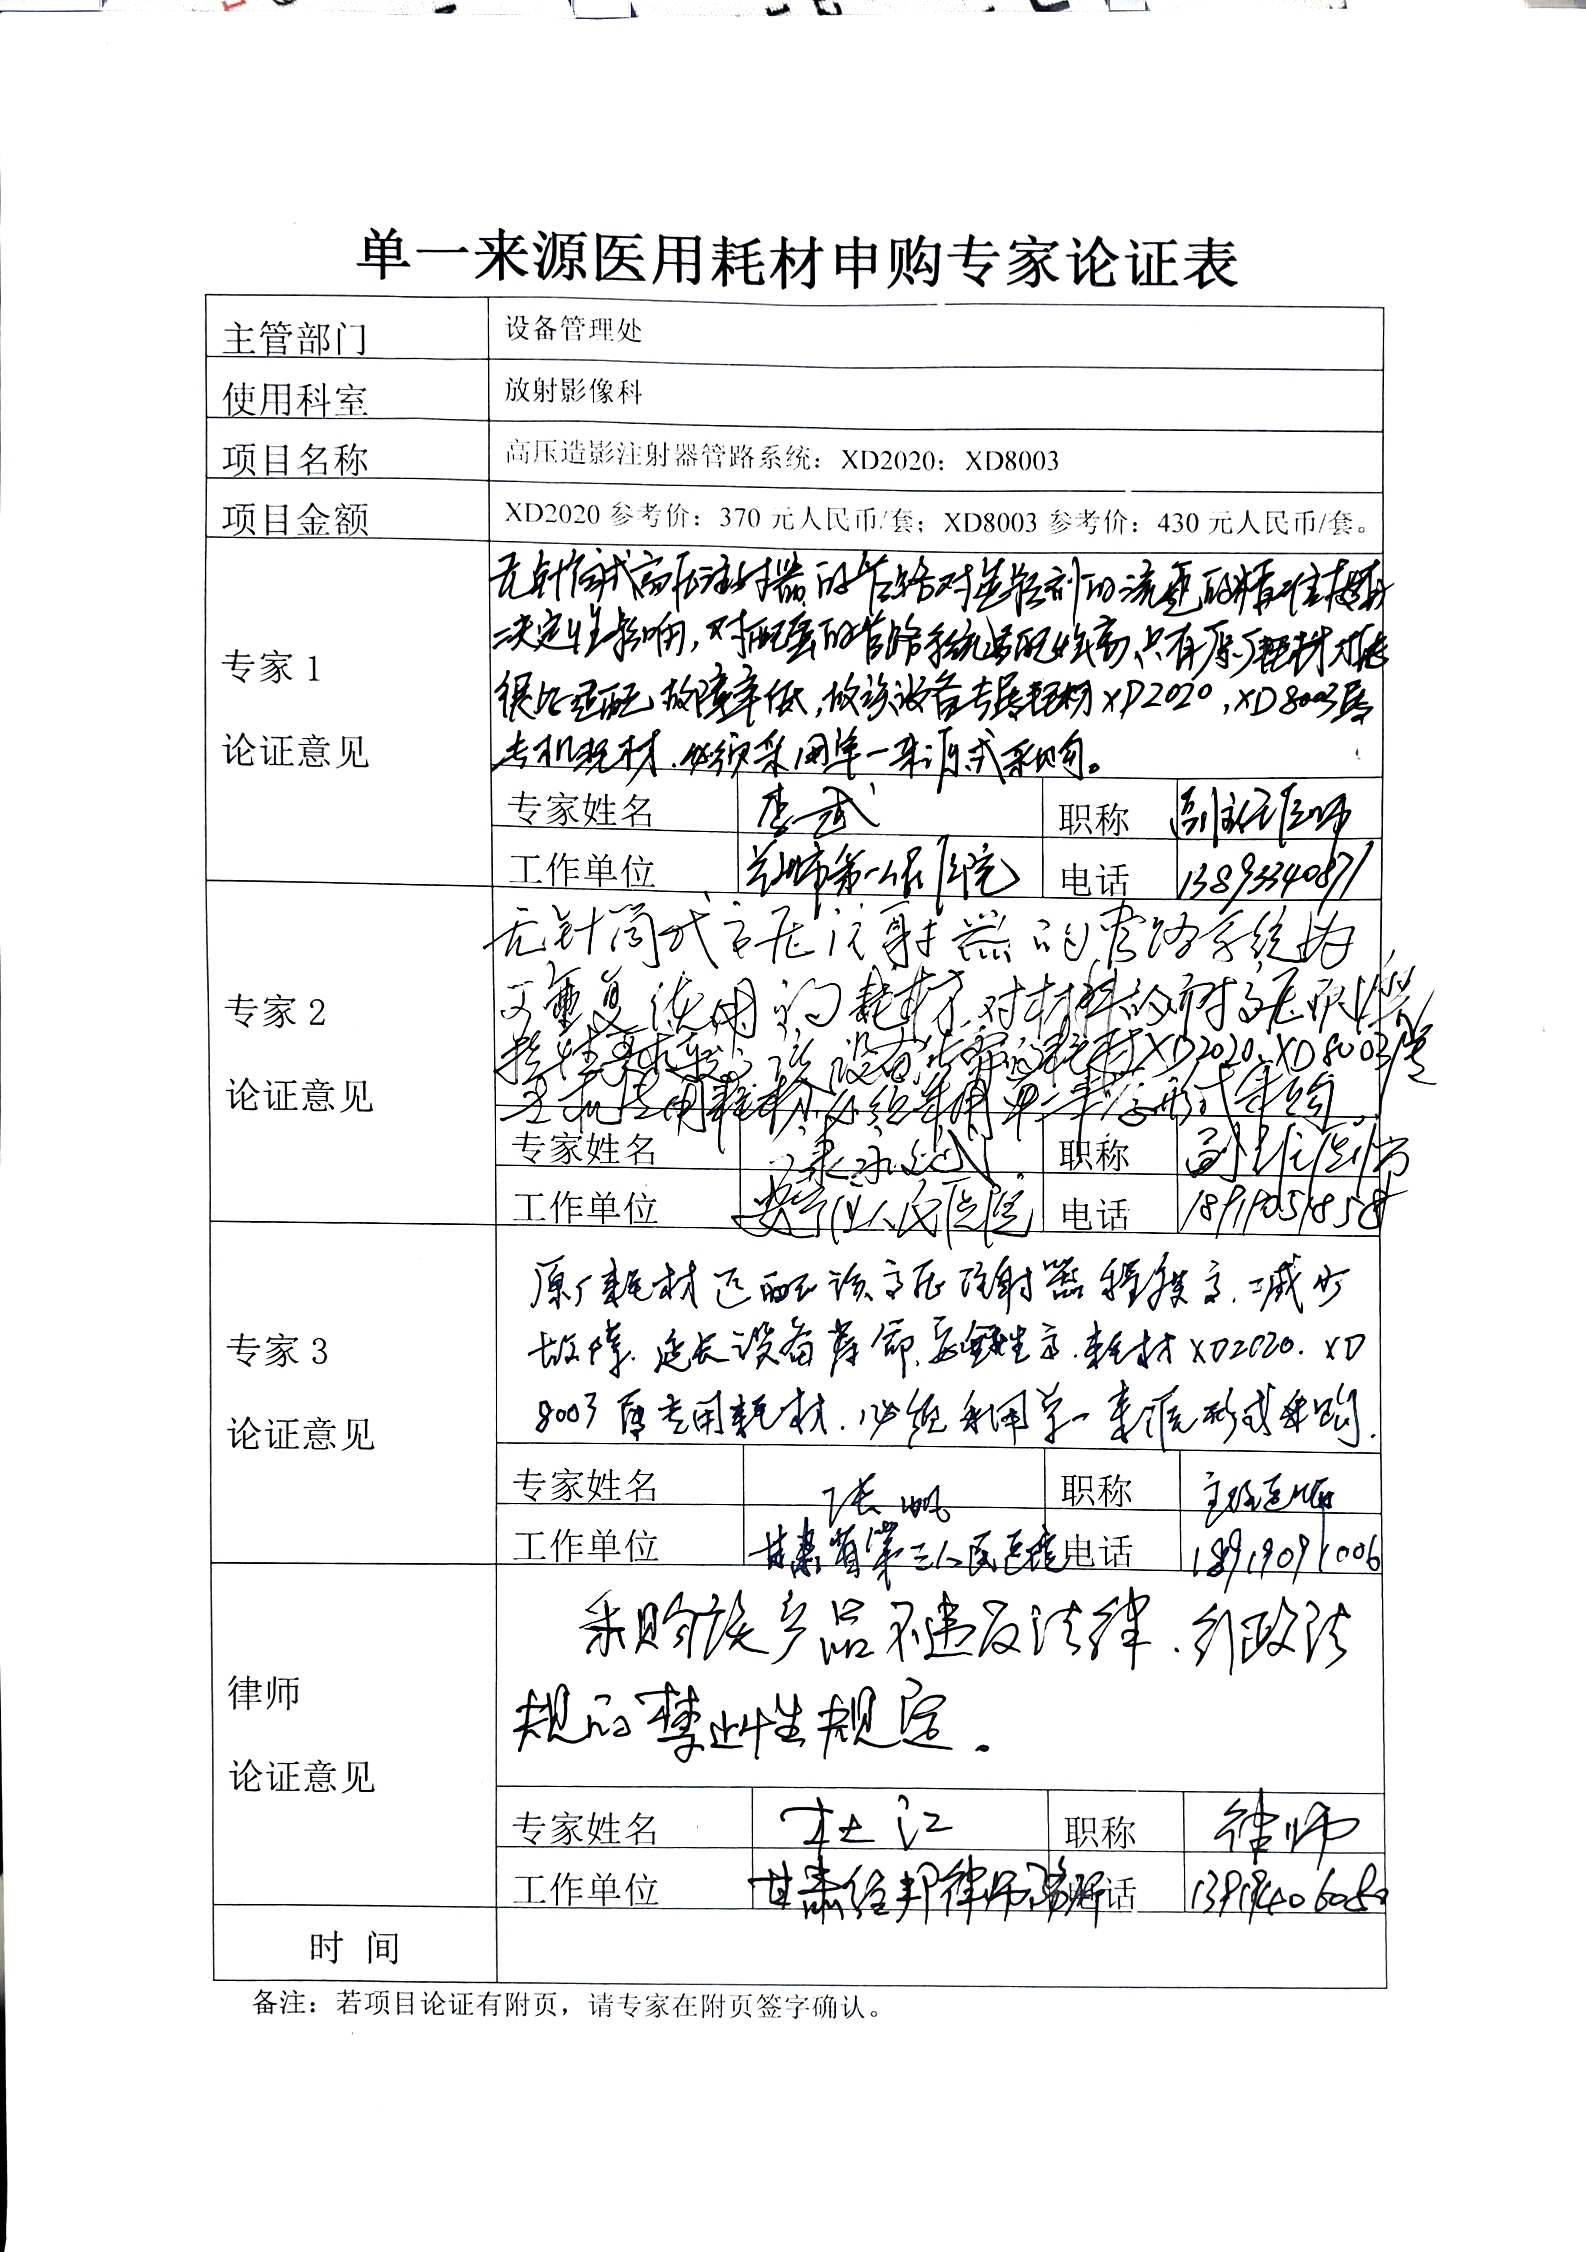 单一来源医用耗材申购专家论证表
主管部门 设备管理处
使用科室 放射影像科
项目名称 高压造影注射器管路系统：XD2020；XD8003
项目金额 XD2020 参考价：370 元人民币/套；XD8003 参考价：430 元人民币/套。
专家 1
论证意见
无针筒式高压注射器的管路对造影剂的流速的精准控制有
决定性影响，对配套的管路系统匹配性高，只有原厂耗材才能
很好匹配，故障率低，故该设备专属耗材XD2020，XD8003属
专机耗材，必须采用单一来源式采购。
专家姓名 李一武 职称 副主任医师
工作单位 兰州市第一人民医院 电话 13893340871
专家 2
论证意见
无针筒式高压注射器的管路系统为
可重复使用的耗材，对材料的耐高压
要求较高，该设备所需的耗材XD2020、XD8003属
专机专用耗材，必须采用单一来源形式采购。
专家姓名 职称 副主任医师
工作单位 安宁区人民医院 电话 18919051858
专家 3
论证意见
原厂耗材匹配该高压注射器程度高，减少
故障，延长设备寿命，安全性高，耗材XD2020、XD
8003属专用耗材，必须采用单一来源形式采购。
专家姓名 张帆 职称 主任医师
工作单位 甘肃省第三人民医院 电话 18919091006
律师
论证意见
采购该产品不违反法律、行政法
规的禁止性规定。
专家姓名 杜江 职称 律师
工作单位 甘肃经邦律师事务所 电话 13919406080
时 间
备注：若项目论证有附页，请专家在附页签字确认。